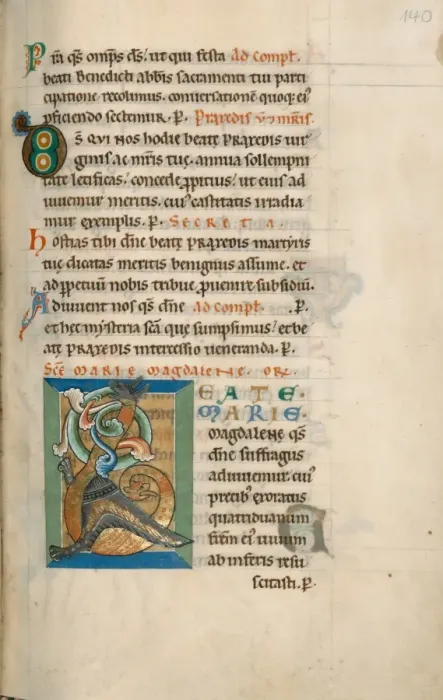 140
Pra qs omps ds/ ut qui festa Ad Compl.
beati Benedicti abbis sacramenti tui parti
cipatione recolimus. conversatione quoq; ei
pficiendo sectemur. P. Praxedis v. 7 mris.
DS QUI NOS hodie beate PRAXEDIS vir
ginis ac mris tue. annua sollempni
tate letificas/ concede ppitius/ ut eius ad
iuuemur meritis. cui castitatis irradia
mur exemplis. P. Secreta.
Hostias tibi dne beate PRAXEDIS martyris
tue dicatas meritis benignus assume. et
ad ppetuu nobis tribue puenire subsidiu.
Adiuuent nos qs dne Ad compl. .P.
et hec mysteria sca que sumpsimus/ et be
ate PRAXEDIS intercessio ueneranda. P.
Sce MARIE MAGDALENE. OR.
BEATE.
MARIE.
Magdalene qs
dne suffragus
adiuuemur. cui
precib exoratus
quatriduanum
frem ei uiuum
ab inferis resu
scitasti. P.